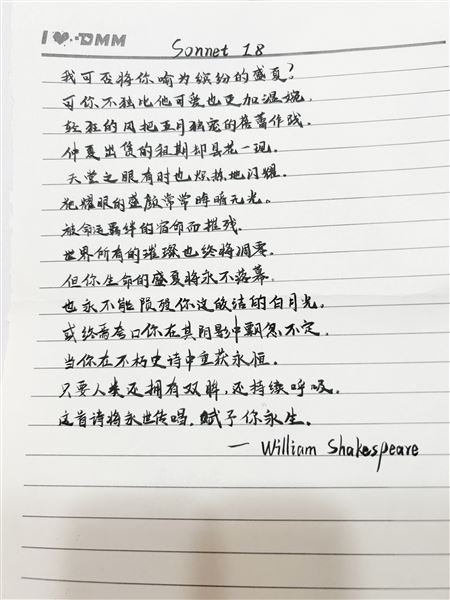 I ❤ DMM
Sonnet 18
我可否将你喻为缤纷的盛夏?
可你不独比他可爱也更加温婉.
轻狂的风把五月独宠的蓓蕾作践.
仲夏出赁的租期却昙花一现.
天堂之眼有时也炽热地闪耀.
他耀眼的盛颜常常晦暗无光.
被命运羁绊的宿命而摧残.
世界所有的璀璨也终将凋零.
但你生命的盛夏将永不落幕.
也永不能陨殁你这皎洁的白月光.
或终焉夸口你在其阴影中飘忽不定.
当你在不朽史诗中重获永恒.
只要人类还拥有双眸,还持续呼吸.
这首诗将永世传唱.赋予你永生.
— William Shakespeare